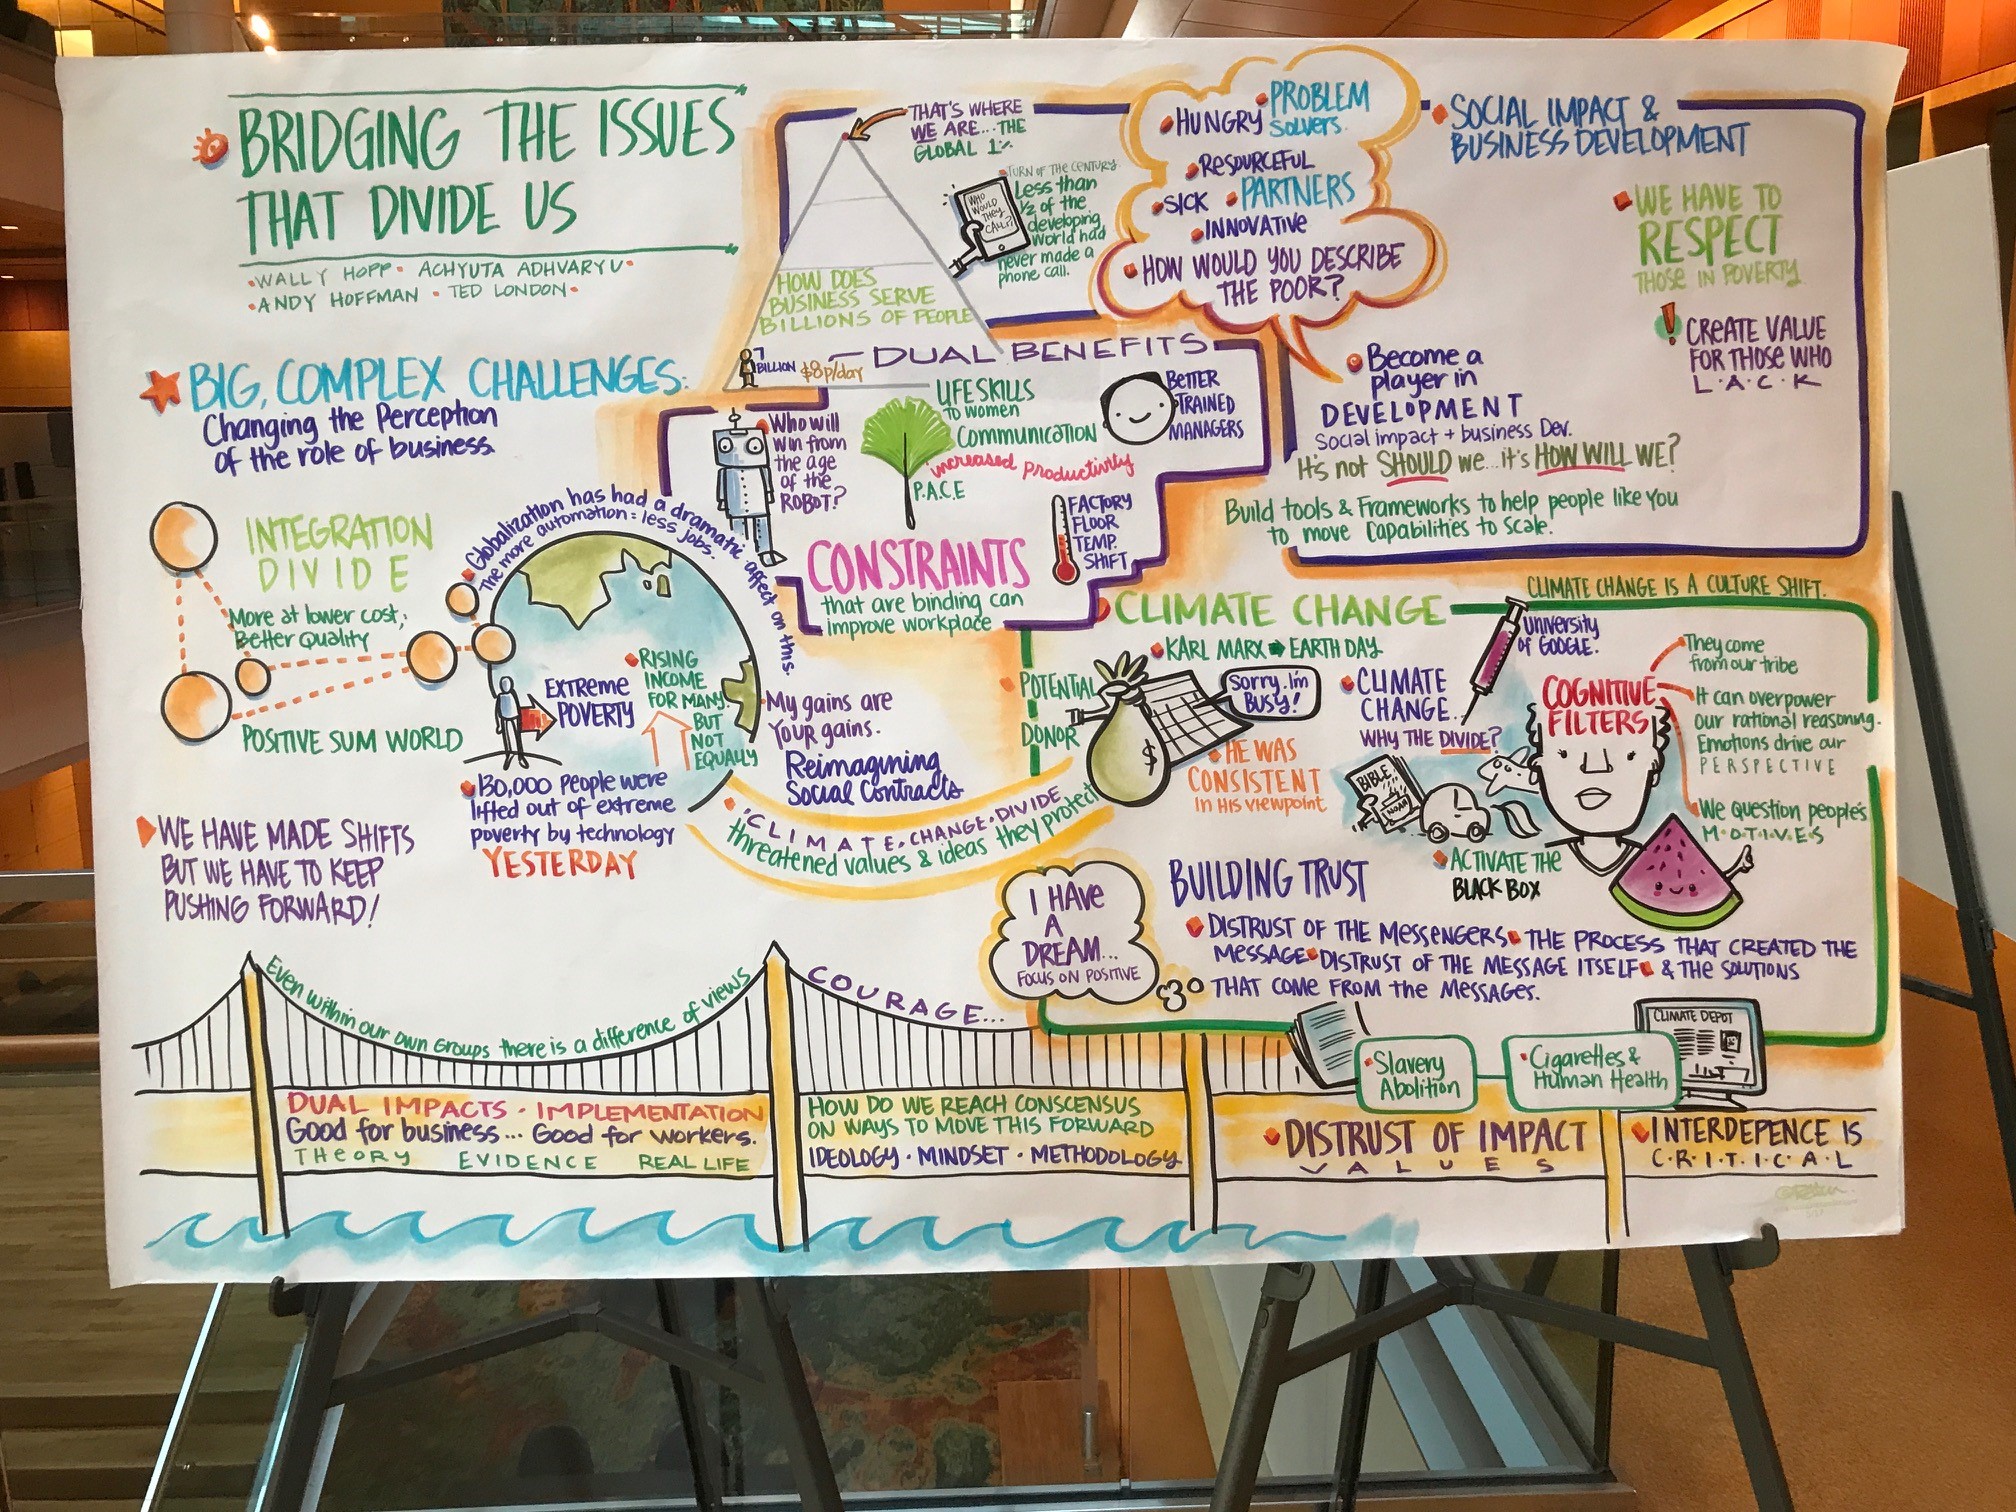 BRIDGING THE ISSUES
THAT DIVIDE US
• WALLY HOPP • ACHYUTA ADHVARYU •
• ANDY HOFFMAN • TED LONDON •
BIG, COMPLEX CHALLENGES:
Changing the Perception
of the role of business
INTEGRATION
DIVIDE
More at lower cost,
Better Quality
POSITIVE SUM WORLD
Globalization has had a dramatic affect on this.
The more automation = less jobs.
EXTREME
POVERTY
RISING
INCOME
FOR MANY!
BUT
NOT
EQUALLY
130,000 People were
lifted out of extreme
poverty by technology
YESTERDAY
WE HAVE MADE SHIFTS
BUT WE HAVE TO KEEP
PUSHING FORWARD!
THAT'S WHERE
WE ARE... THE
GLOBAL 1%
TURN OF THE CENTURY
Less than
1/2 of the
developing
world had
never made a
phone call.
WHO
WOULD
THEY
CALL?!
HOW DOES
BUSINESS SERVE
BILLIONS OF PEOPLE
7
BILLION $8p/day
DUAL BENEFITS
Who will
win from
the age
of the
ROBOT?
LIFE SKILLS
to women
Communication
increased productivity
P.A.C.E
BETTER
TRAINED
MANAGERS
FACTORY
FLOOR
TEMP.
SHIFT
CONSTRAINTS
that are binding can
improve workplace
My gains are
YOUR gains.
Reimagining
Social Contracts
HUNGRY • PROBLEM
Solvers.
• RESOURCEFUL
• SICK • PARTNERS
• INNOVATIVE
• HOW WOULD YOU DESCRIBE
THE POOR?
SOCIAL IMPACT &
BUSINESS DEVELOPMENT
WE HAVE TO
RESPECT
THOSE IN POVERTY
! CREATE VALUE
FOR THOSE WHO
L•A•C•K
Become a
player in
DEVELOPMENT
Social impact + business Dev.
It's not SHOULD we... it's HOW WILL WE?
Build tools & Frameworks to help people like you
to move Capabilities to Scale!
CLIMATE CHANGE
CLIMATE CHANGE IS A CULTURE SHIFT.
KARL MARX ➡ EARTH DAY
POTENTIAL
DONOR
$
Sorry. I'm
BUSY!
HE WAS
CONSISTENT
in His viewpoint
CLIMATE
CHANGE...
WHY THE DIVIDE?
University
of GOOGLE.
COGNITIVE
FILTERS
They come
from our tribe
It can overpower
our rational reasoning.
Emotions drive our
PERSPECTIVE
We question people's
M•O•T•I•V•E•S
BIBLE
NOAH
ACTIVATE THE
BLACK BOX
• CLIMATE • CHANGE • DIVIDE
threatened values & ideas they protect
BUILDING TRUST
DISTRUST OF THE MESSENGERS • THE PROCESS THAT CREATED THE
MESSAGE • DISTRUST OF THE MESSAGE ITSELF • & THE SOLUTIONS
THAT COME FROM THE MESSAGES.
I HAVE
A
DREAM...
FOCUS ON POSITIVE
Even within our own groups there is a difference of views
COURAGE...
• Slavery
Abolition
• Cigarettes &
Human Health
CLIMATE DEPOT
DUAL IMPACTS • IMPLEMENTATION
Good for business... Good for workers.
THEORY EVIDENCE REAL LIFE
HOW DO WE REACH CONSCENSUS
ON WAYS TO MOVE THIS FORWARD
IDEOLOGY • MINDSET • METHODOLOGY
DISTRUST OF IMPACT
VALUES
INTERDEPENCE IS
C•R•I•T•I•C•A•L